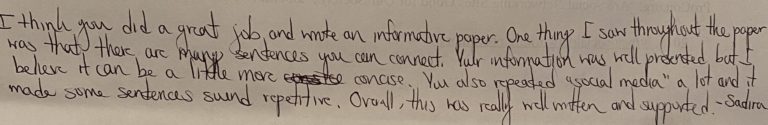 I think you did a great job, and wrote an informative paper. One thing I saw throughout the paper
was that, there are many sentences you can connect. Your information was well presented, but I
believe it can be a little more concise. You also repeated "social media" a lot and it
made some sentences sound repetitive. Overall, this was really well written and supported. -Sadira